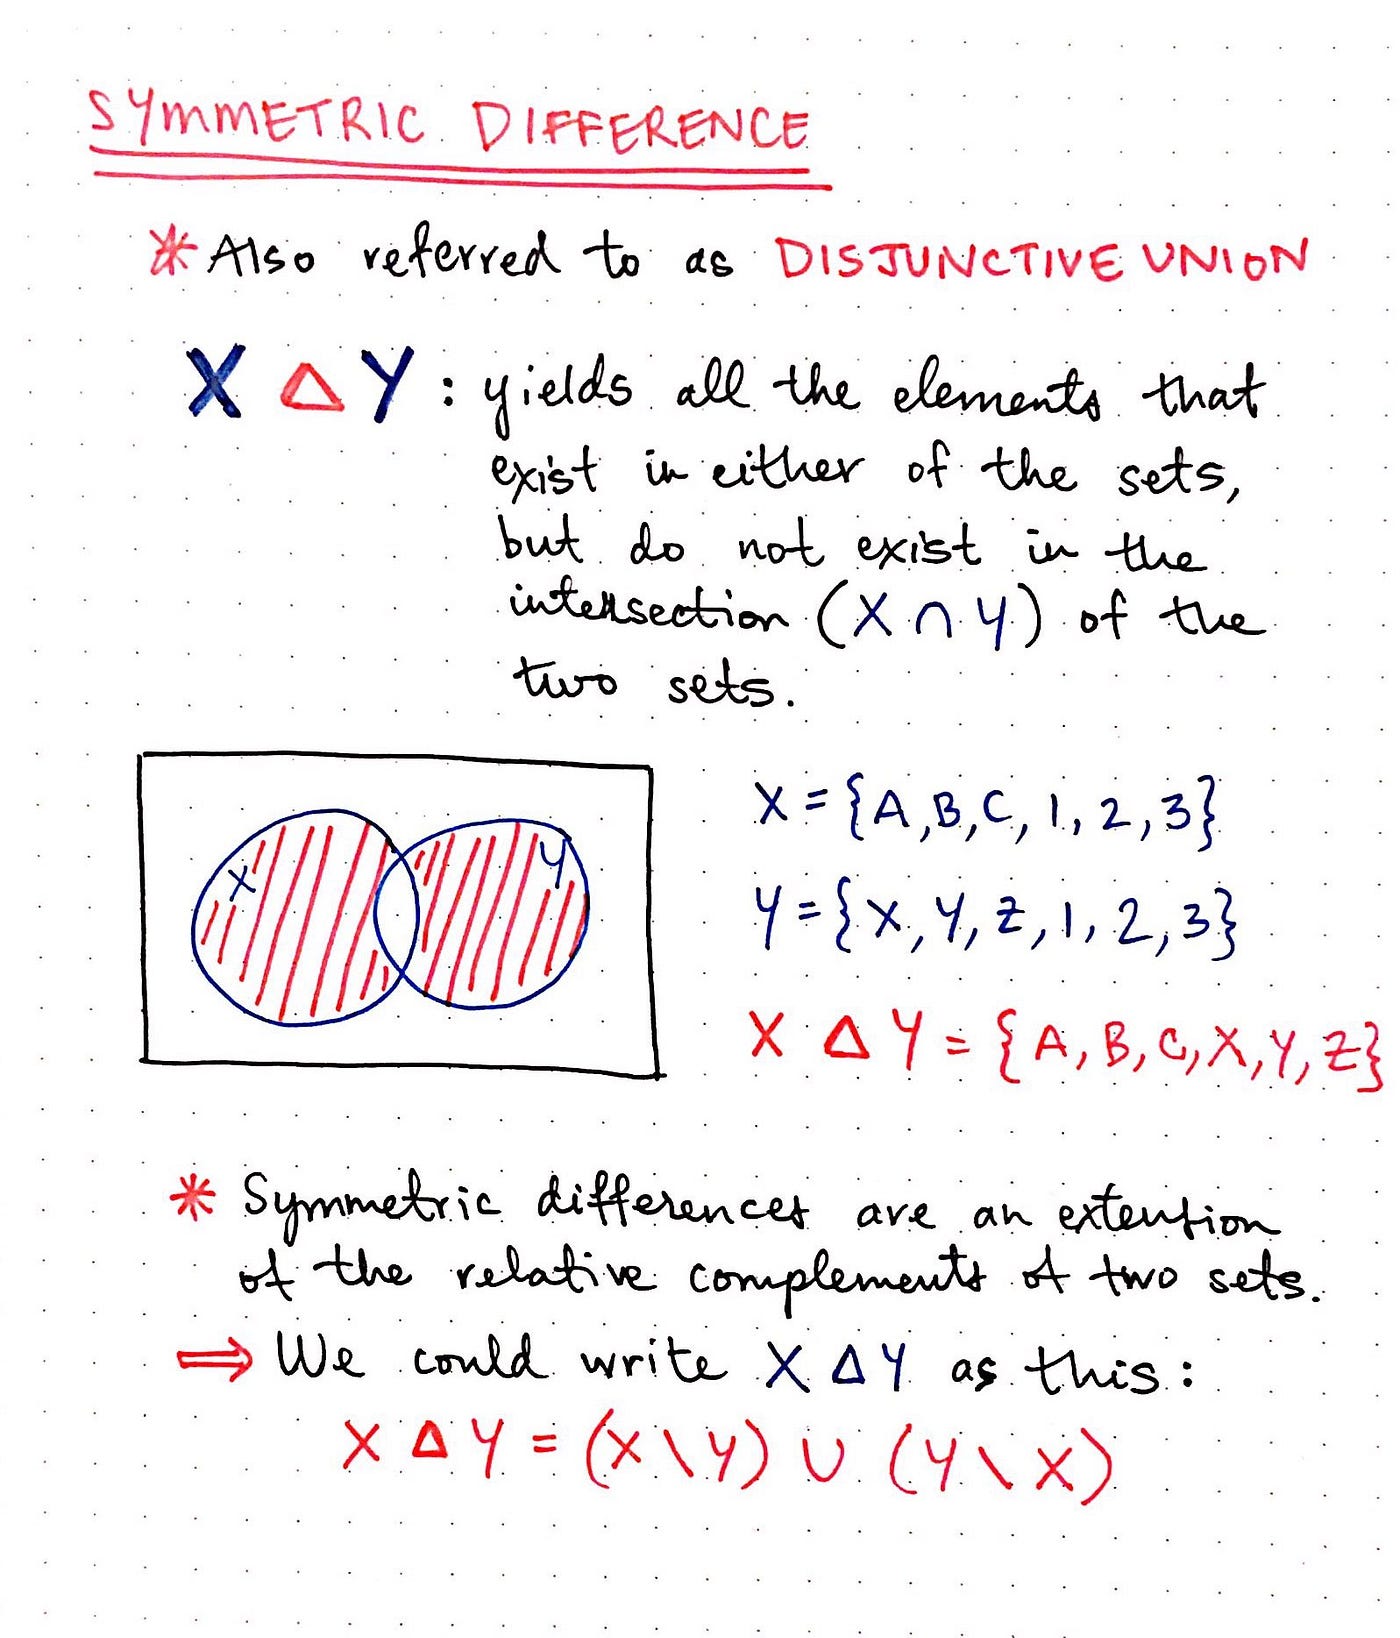 SYMMETRIC DIFFERENCE
* Also referred to as DISJUNCTIVE UNION
X Δ Y : yields all the elements that
exist in either of the sets,
but do not exist in the
intersection (X ∩ Y) of the
two sets.
X
Y
X = {A, B, C, 1, 2, 3}
Y = {X, Y, Z, 1, 2, 3}
X Δ Y = {A, B, C, X, Y, Z}
* Symmetric differences are an extention
of the relative complements of two sets.
⇒ We could write X Δ Y as this:
X Δ Y = (X \ Y) ∪ (Y \ X)